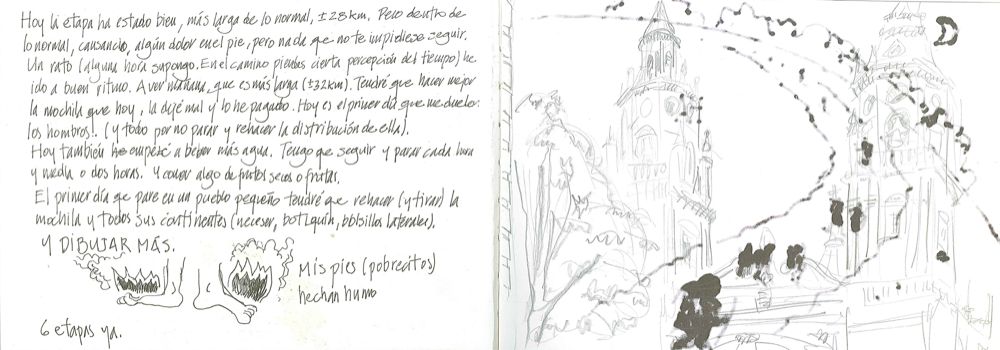 Hoy la etapa ha estado bien, más larga de lo normal, ±28km. Pero dentro de
lo normal, causando, algún dolor en el pie, pero nada que no te impidiese seguir.
Un rato (alguna hora supongo. En el camino pierdes cierta percepción del tiempo) he
ido a buen ritmo. A ver mañana, que es más larga (±32km). Tendré que hacer mejor
la mochila que hoy, la dejé mal y lo he pagado. Hoy es el primer día que me duelen
los hombros!. (y todo por no parar y rehacer la distribución de ella).
Hoy también he empecé a beber más agua. Tengo que seguir y parar cada hora
y media o dos horas. Y comer algo de frutos secos o frutas.
El primer día que pare en un pueblo pequeño tendré que rehacer (y tirar) la
mochila y todos sus continentes (neceser, botiquín, bolsillos laterales).
Y DIBUJAR MÁS.
Mis pies (pobrecitos)
hechan humo
6 etapas ya.